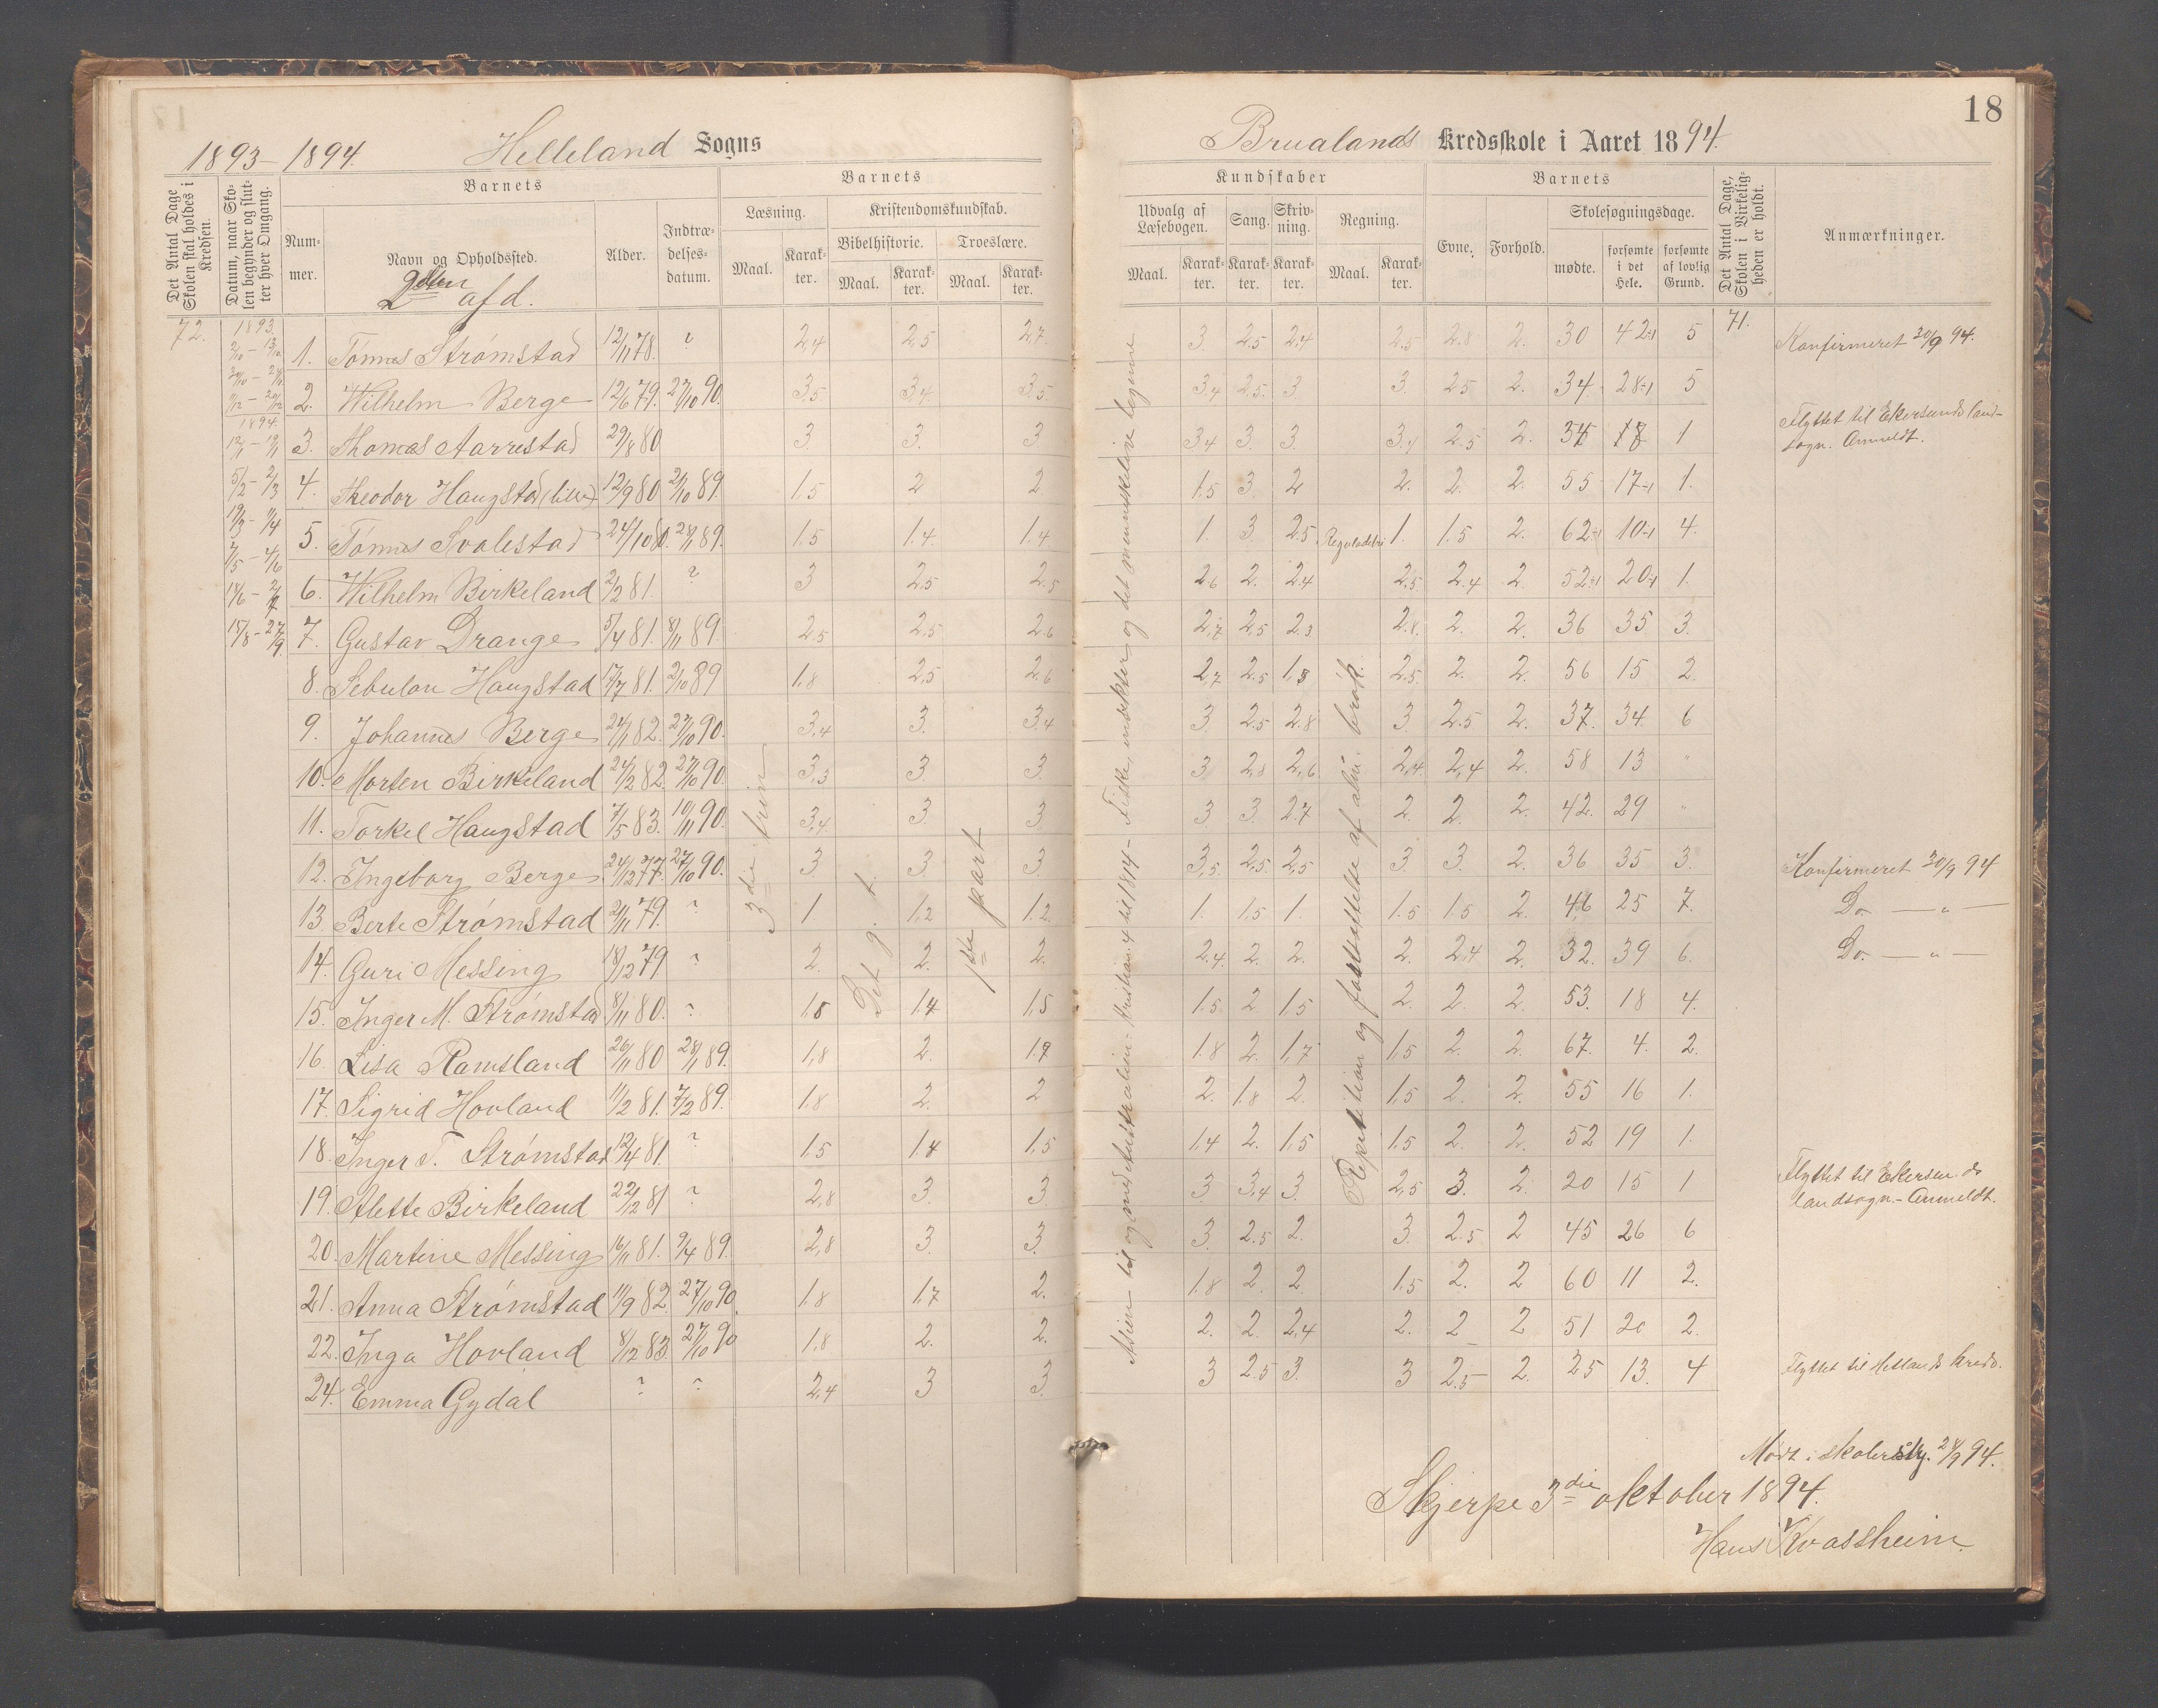 18
1893-1894.
Helleland Sogns
Brualands Kredsskole i Aaret 1894.
Det Antal Dage Skolen skal holdes i Kredsen.
Datum, naar Skolen begynder og slutter hver Omgang.
Barnets
Nummer.
Navn og Opholdssted.
Alder.
Indtrædelsesdatum.
Barnets
Læsning.
Kristendomskundskab.
Bibelhistorie.
Troeslære.
Maal.
Karakter.
Maal.
Karakter.
Maal.
Karakter.
Kundskaber
Udvalg af Læsebogen.
Sang.
Skrivning.
Regning.
Maal.
Karakter.
Karakter.
Karakter.
Maal.
Karakter.
Barnets
Evne.
Forhold.
Skolesøgningsdage.
mødte.
forsømte i det Hele.
forsømte af lovlig Grund.
Det Antal Dage, Skolen i Virkeligheden er holdt.
Anmærkninger.
afd.
72.
1893.
1894.
71.
1. Tønnes Strømstad 12/11 78. ? 2,4 2,5 2,7 3. 2.5 2,4 2.5 2.8 2. 30 42-1 5 Konfirmeret 30/9 94.
2. Wilhelm Berge 12/6 79. 27/10 90. 3,5 3,4. 3,5. 3,4 2.5. 3. 3. 2.5 2. 34 28-1 5
3. Thomas Aarrestad 29/8 80 3. 3. 3 3,4 3. 3. 3,4 2.5 2. 18 1 Flyttet til Ekersunds landsogn. Anmeldt.
4. Theodor Haugstad (lille) 12/9 80 2/10 89. 1,5 2 2 1.5 3. 2 2. 2. 2. 55 17-1 1.
5. Tønnes Svalestad 24/10 80. 28/1 89. 1,5 1.4 1.4 1. 3. 2.5 1. 1.5 2. 62-1 10-1 4.
6. Wilhelm Birkeland 2/2 81. ? 3 2.5 2.5 2.6 2. 2.4 2.5. 2.4 2. 52-1 20-1 1.
7. Gustav Drange 5/4 81. 8/11 89. 2,5 2.5 2.6 2,7 2,5 2.8 2. 2. 36 35 3.
8. Sebulon Haugstad 17/7 81. 2/10 89 1,8 2,5 2.6 2,7 2.5 1,8 2.5. 2. 2. 56 15 2.
9. Johannes Berge 24/1 82. 27/10 90. 3,4 3. 3.4 3. 2.5 2.8 3 2.5 2. 37. 34. 6
10. Morten Birkeland 24/2 82. 27/10 90. 3,3 3. 3. 3. 2,8 2,6 2,4. 2,4 2. 58 13 "
11. Torkel Haugstad 7/5 83. 10/11 90. 3,4. 3. 3. 3 3. 2.7 2. 2. 2. 42. 29 "
12. Ingeborg Berge 24/12 77. 27/10 90. 3 3. 3. 3,5 2,5. 2,5 3 3. 2. 36 35 3. Konfirmeret 30/9 94
13. Berte Strømstad 2/11 79. ? 1 1,2 1.2. 1. 1.5 1. 1.5 1.5 2. 46 25 7. Do. — " —
14. Guri Messing 18/12 79 ? 2. 2. 2. 2.4. 2. 2. 2. 2,4 2. 32. 39 6. Do. — " —
15. Inger M. Strømstad 8/11 80. ? 1,8 1.4 1,5 1.5 2 1.5 2. 2. 2. 53. 18 4.
16. Lisa Ramsland 26/11 80 28/1 89. 1,8 2. 1.9 1.8 2. 1,7 1,5 2. 2. 67. 4. 2.
17. Sigrid Hovland 11/2 81. 7/2 89. 1.8 2. 2 2. 1.8 2. 1.5 2. 2. 55 16 1.
18. Inger T. Strømstad 12/4 81. ? 1.5 1.4 1,5 1,4 2. 1.5 1.5 2. 2. 52 19 1.
19. Alette Birkeland 22/12 81 ? 2,8 3. 3. 3 3,4 3. 2,5 3. 2. 20 15 1 Flyttet til Ekersunds landsogn.- Anmeldt.
20. Martine Messing 16/11 81. 9/4 89. 2,8 3 3. 3. 2.5 2. 3. 2.5 2 45 26 6
21. Anna Strømstad 11/9 82. 27/10 90. 1,8 1,7 2. 1.8 2. 2. 1.5 2. 2 60 11 2.
22. Inga Hovland 8/12 83. 27/10 90 1,8 2. 2. 2. 2. 2,4 2. 2 2 51 20 2.
24. Emma Gydal ? ? 2,4 3 3. 3 2.5 3. 3 2.5 2. 25 13. 4 Flyttet til Hetlands kreds.
3die trin
Det g. t.
1ste part
Asien til og med Australien. - Kristian 4 til 1814 - Fiske, insekter og det menneskelige legeme
Repetition og fastsættelse af alm. brøk.
Mødt i skolerstyr. 28/9 94.
Skjerpe 3die oktober 1894.
Hans Kvassheim.